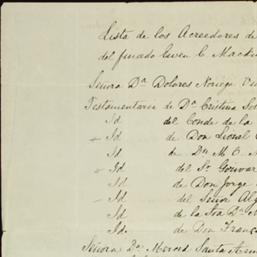 Lista de los Acreedores de
del finado Ewen C. Mackin
Señora Dª Dolores Noriega Viu
Testamentaria de Dª Cristina So
Id del Conde de la
Id de Don Lional
Id de Dn M. C.
Id del Sr Gouvar
Id de Don Jorge
Id del Señor Alg
Id de la Sra Dª
Id de Don Franç
Señora Dª Merced Santa Ana